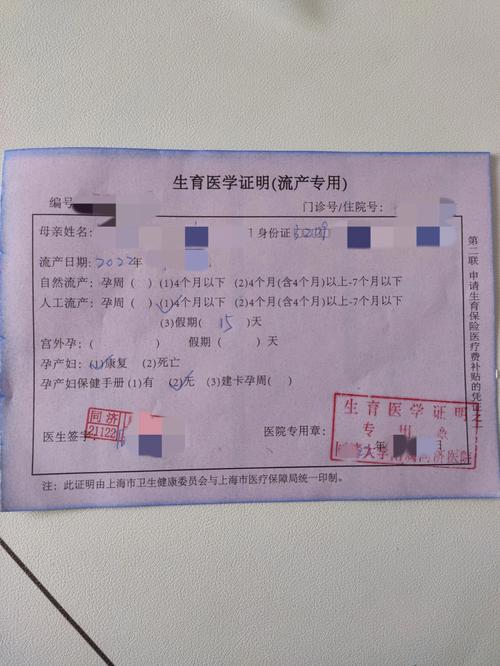 生育医学证明(流产专用)
编号
门诊号/住院号:
母亲姓名:
身份证
流产日期:2022年
自然流产:孕周( ) (1)4个月以下 (2)4个月(含4个月)以上-7个月以下
人工流产:孕周( ) (1)4个月以下 (2)4个月(含4个月)以上-7个月以下
(3)假期( 15 )天
宫外孕:( ) 假期( )天
孕产妇:(1)康复 (2)死亡
孕产妇保健手册(1)有 (2)无 (3)建卡孕周( )
同济
21122
医生签字
医院专用章:
年 月
生育医学证明
专用章
大学附属同济医院
注:此证明由上海市卫生健康委员会与上海市医疗保障局统一印制。
第二联 申请生育保险医疗费补贴的凭证之一